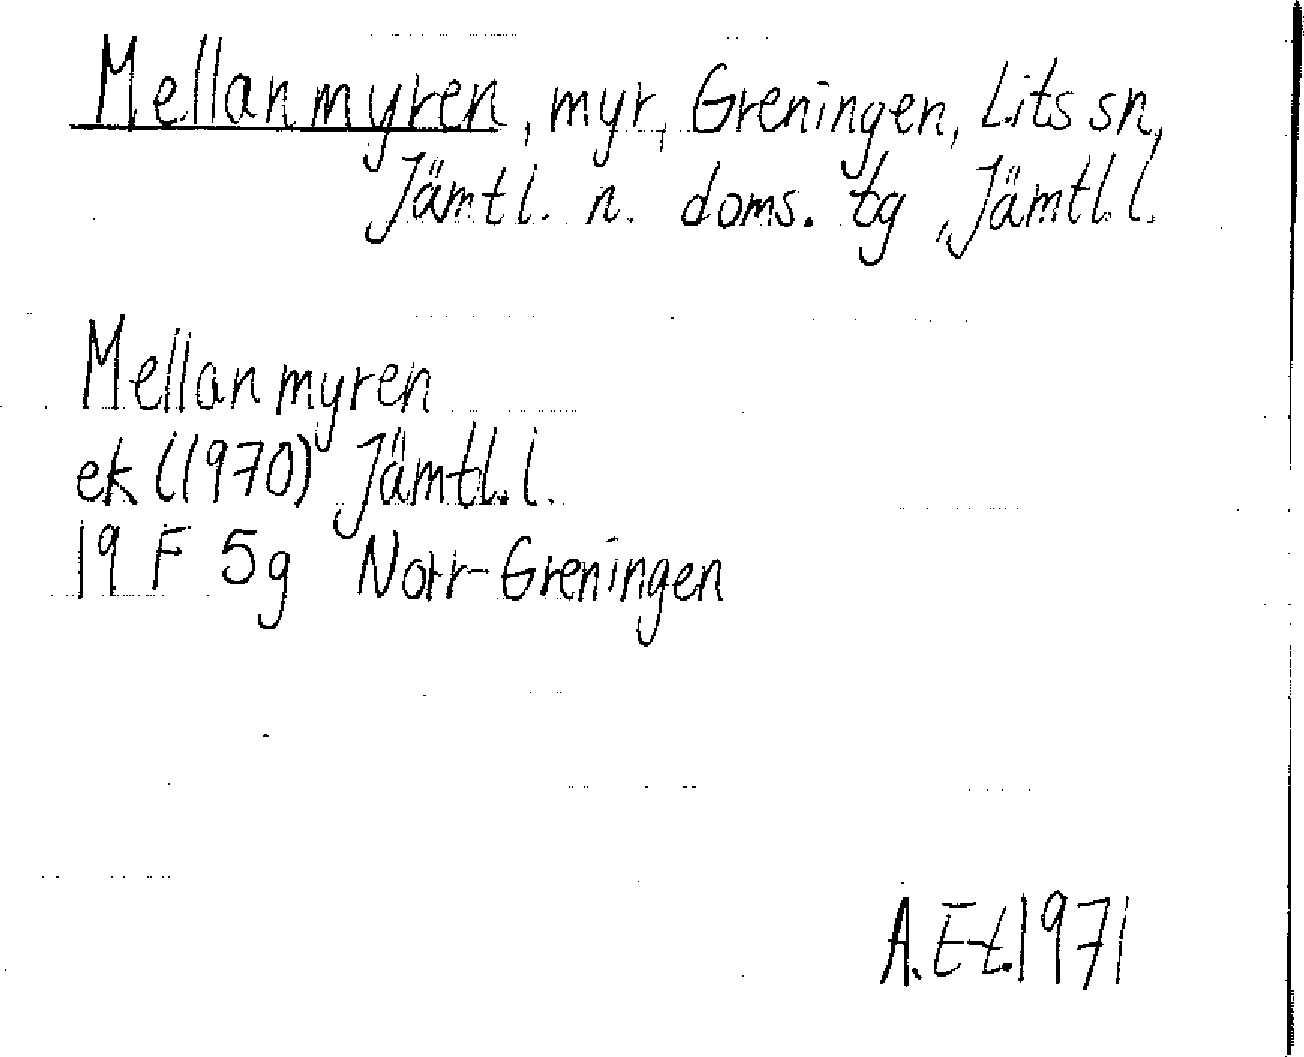 Mellanmyren, myr, Greningen, Lits sn,
Jämtl. n. doms. tg, Jämtl. l.
Mellanmyren
ek (1970) Jämtl. l.
19 F 5g Norr-Greningen
A. E-t. 1971